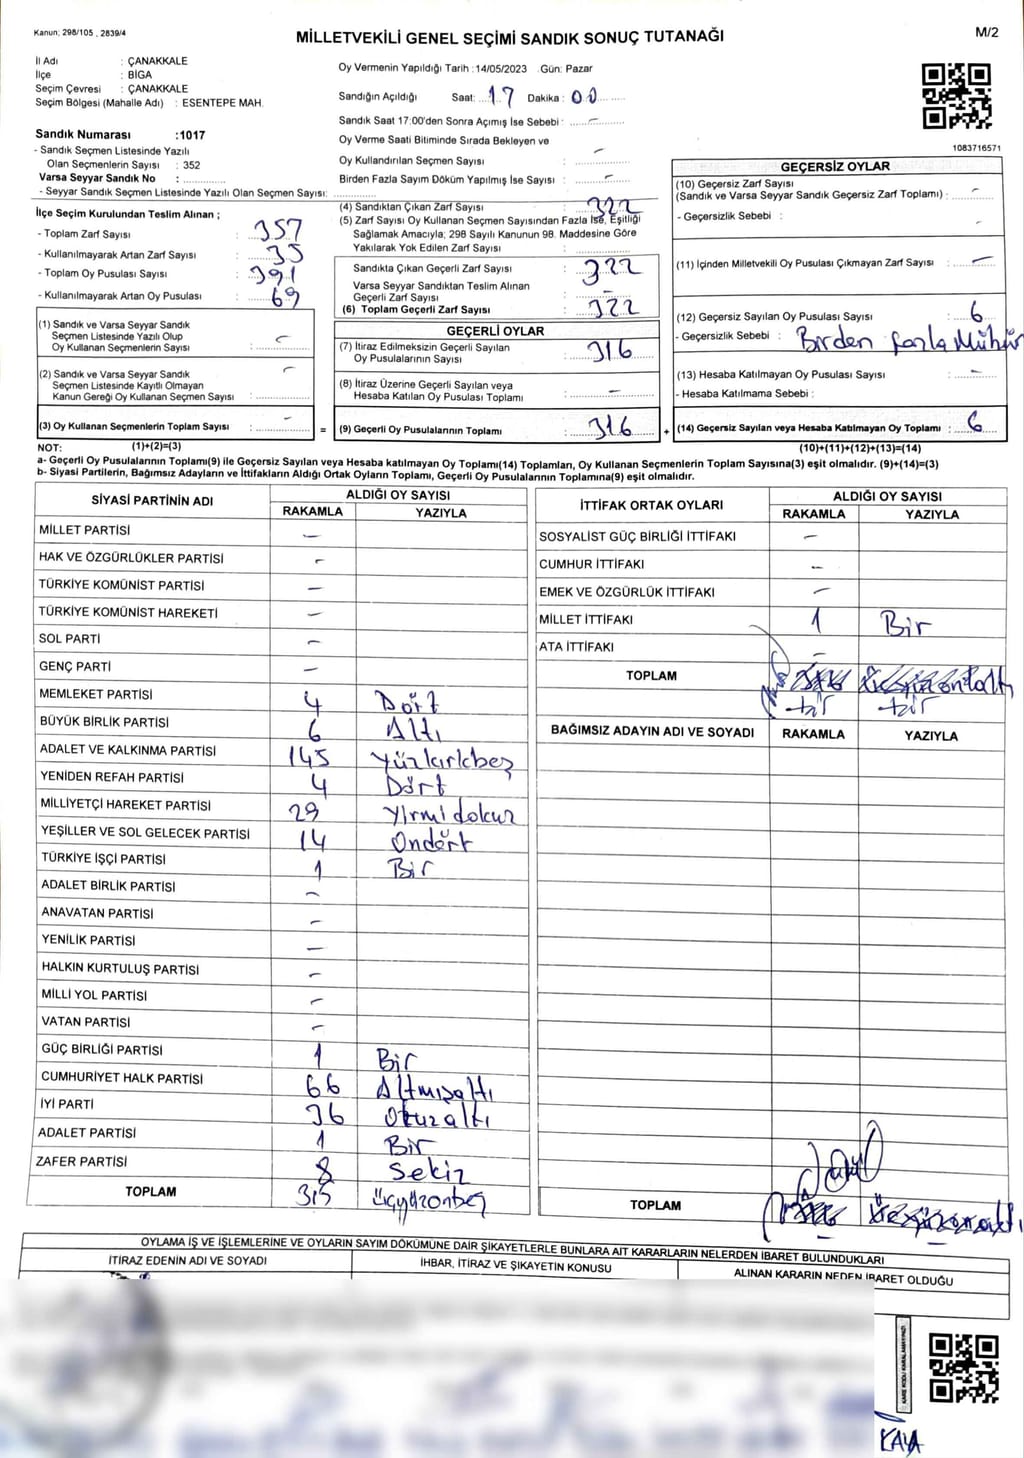 Kanun; 298/105 , 2839/4
MİLLETVEKİLİ GENEL SEÇİMİ SANDIK SONUÇ TUTANAĞI
M/2
İl Adı : ÇANAKKALE
İlçe : BİGA
Seçim Çevresi : ÇANAKKALE
Seçim Bölgesi (Mahalle Adı) : ESENTEPE MAH.
Sandık Numarası :1017
- Sandık Seçmen Listesinde Yazılı
Olan Seçmenlerin Sayısı : 352
Varsa Seyyar Sandık No :
- Seyyar Sandık Seçmen Listesinde Yazılı Olan Seçmen Sayısı:
İlçe Seçim Kurulundan Teslim Alınan ;
- Toplam Zarf Sayısı : 357
- Kullanılmayarak Artan Zarf Sayısı : 35
- Toplam Oy Pusulası Sayısı : 391
- Kullanılmayarak Artan Oy Pusulası : 69
(1) Sandık ve Varsa Seyyar Sandık
Seçmen Listesinde Yazılı Olup
Oy Kullanan Seçmenlerin Sayısı : -
(2) Sandık ve Varsa Seyyar Sandık
Seçmen Listesinde Kayıtlı Olmayan
Kanun Gereği Oy Kullanan Seçmen Sayısı : -
(3) Oy Kullanan Seçmenlerin Toplam Sayısı : -
Oy Vermenin Yapıldığı Tarih :14/05/2023 .Gün: Pazar
Sandığın Açıldığı Saat: 17 Dakika : 00
Sandık Saat 17:00'den Sonra Açımış İse Sebebi : -
Oy Verme Saati Bitiminde Sırada Bekleyen ve
Oy Kullandırılan Seçmen Sayısı : -
Birden Fazla Sayım Döküm Yapılmış İse Sayısı : -
(4) Sandıktan Çıkan Zarf Sayısı : 322
(5) Zarf Sayısı Oy Kullanan Seçmen Sayısından Fazla İse, Eşitliği
Sağlamak Amacıyla; 298 Sayılı Kanunun 98. Maddesine Göre
Yakılarak Yok Edilen Zarf Sayısı :
Sandıkta Çıkan Geçerli Zarf Sayısı : 322
Varsa Seyyar Sandıktan Teslim Alınan
Geçerli Zarf Sayısı : -
(6) Toplam Geçerli Zarf Sayısı : 322
GEÇERLİ OYLAR
(7) İtiraz Edilmeksizin Geçerli Sayılan
Oy Pusulalarının Sayısı : 316
(8) İtiraz Üzerine Geçerli Sayılan veya
Hesaba Katılan Oy Pusulası Toplamı : -
= (9) Geçerli Oy Pusulalarının Toplamı : 316 +
1083716571
GEÇERSİZ OYLAR
(10) Geçersiz Zarf Sayısı
(Sandık ve Varsa Seyyar Sandık Geçersiz Zarf Toplamı) : -
- Geçersizlik Sebebi : -
(11) İçinden Milletvekili Oy Pusulası Çıkmayan Zarf Sayısı : -
(12) Geçersiz Sayılan Oy Pusulası Sayısı : 6
- Geçersizlik Sebebi : Birden fazla Mühür
(13) Hesaba Katılmayan Oy Pusulası Sayısı : -
- Hesaba Katılmama Sebebi :
(14) Geçersiz Sayılan veya Hesaba Katılmayan Oy Toplamı : 6
NOT: (1)+(2)=(3) (10)+(11)+(12)+(13)=(14)
a- Geçerli Oy Pusulalarının Toplamı(9) ile Geçersiz Sayılan veya Hesaba katılmayan Oy Toplamı(14) Toplamları, Oy Kullanan Seçmenlerin Toplam Sayısına(3) eşit olmalıdır. (9)+(14)=(3)
b- Siyasi Partilerin, Bağımsız Adayların ve İttifakların Aldığı Ortak Oyların Toplamı, Geçerli Oy Pusulalarının Toplamına(9) eşit olmalıdır.
SİYASİ PARTİNİN ADI ALDIĞI OY SAYISI
RAKAMLA YAZIYLA
MİLLET PARTİSİ -
HAK VE ÖZGÜRLÜKLER PARTİSİ -
TÜRKİYE KOMÜNİST PARTİSİ -
TÜRKİYE KOMÜNİST HAREKETİ -
SOL PARTİ -
GENÇ PARTİ -
MEMLEKET PARTİSİ 4 Dört
BÜYÜK BİRLİK PARTİSİ 6 Altı
ADALET VE KALKINMA PARTİSİ 145 Yüzkırkbeş
YENİDEN REFAH PARTİSİ 4 Dört
MİLLİYETÇİ HAREKET PARTİSİ 29 Yirmidokuz
YEŞİLLER VE SOL GELECEK PARTİSİ 14 Ondört
TÜRKİYE İŞÇİ PARTİSİ 1 Bir
ADALET BİRLİK PARTİSİ -
ANAVATAN PARTİSİ -
YENİLİK PARTİSİ -
HALKIN KURTULUŞ PARTİSİ -
MİLLİ YOL PARTİSİ -
VATAN PARTİSİ -
GÜÇ BİRLİĞİ PARTİSİ 1 Bir
CUMHURİYET HALK PARTİSİ 66 Altmışaltı
İYİ PARTİ 36 Otuzaltı
ADALET PARTİSİ 1 Bir
ZAFER PARTİSİ 8 Sekiz
TOPLAM 315 üçyüzonbeş
İTTİFAK ORTAK OYLARI ALDIĞI OY SAYISI
RAKAMLA YAZIYLA
SOSYALİST GÜÇ BİRLİĞİ İTTİFAKI -
CUMHUR İTTİFAKI -
EMEK VE ÖZGÜRLÜK İTTİFAKI -
MİLLET İTTİFAKI 1 Bir
ATA İTTİFAKI -
TOPLAM
bir bir
BAĞIMSIZ ADAYIN ADI VE SOYADI RAKAMLA YAZIYLA
TOPLAM
OYLAMA İŞ VE İŞLEMLERİNE VE OYLARIN SAYIM DÖKÜMÜNE DAİR ŞİKAYETLERLE BUNLARA AİT KARARLARIN NELERDEN İBARET BULUNDUKLARI
İTİRAZ EDENİN ADI VE SOYADI
İHBAR, İTİRAZ VE ŞİKAYETİN KONUSU
ALINAN KARARIN NEDEN İBARET OLDUĞU
KARE KODU KARALAMAYINIZ.
KAYA